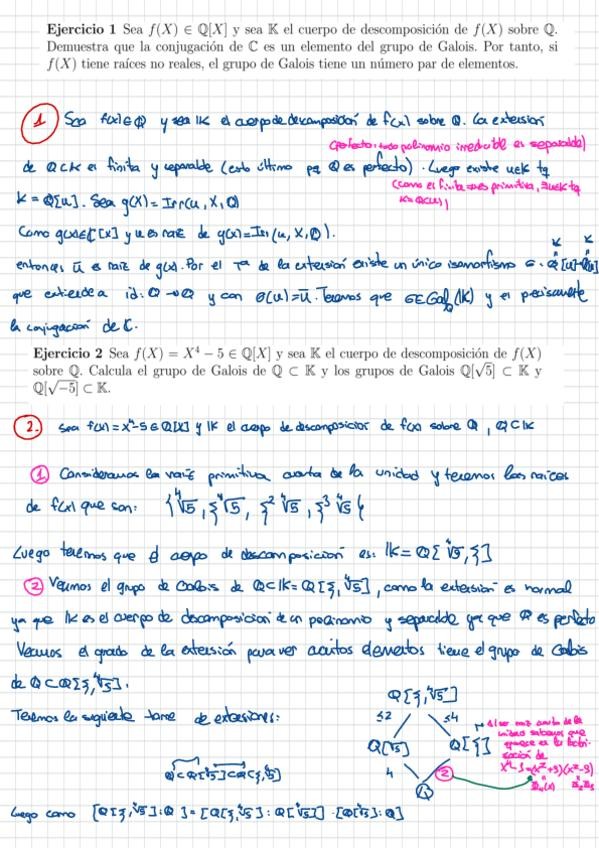 Ejercicio 1 Sea f(X) ∈ Q[X] y sea K el cuerpo de descomposición de f(X) sobre Q.
Demuestra que la conjugación de C es un elemento del grupo de Galois. Por tanto, si
f(X) tiene raíces no reales, el grupo de Galois tiene un número par de elementos.
1 Sea f(x)∈Q y sea K el cuerpo de descomposición de f(x) sobre Q. La extensión
(perfecto: todo polinomio irreducible es separable)
de Q⊂K es finita y separable (esto último pq Q es perfecto). Luego existe u∈K tq
(como es finita ⇒ es primitiva, ∃u∈K tq
K = Q[u]. Sea g(X) = Irr(u, X, Q)
K=Q(u))
Como g(x)∈C[x] y u es raíz de g(x)=Irr(u, X, Q).
entonces ū es raíz de g(x). Por el Tª de la extensión existe un único isomorfismo
que extiende a id: Q→Q y con σ(u)=ū. Tenemos que σ∈Gal_Q(K) y es precisamente
la conjugación de C.
Ejercicio 2 Sea f(X) = X⁴ − 5 ∈ Q[X] y sea K el cuerpo de descomposición de f(X)
sobre Q. Calcula el grupo de Galois de Q ⊂ K y los grupos de Galois Q[√5] ⊂ K y
Q[√−5] ⊂ K.
2. Sea f(x)=x⁴-5∈Q[x] y K el cuerpo de descomposición de f(x) sobre Q, Q⊂K
1 Consideramos la raíz primitiva cuarta de la unidad y tenemos las raíces
de f(x) que son: {⁴√5, ξ⁴√5, ξ² ⁴√5, ξ³ ⁴√5}
Luego tenemos que el cuerpo de descomposición es: K=Q[⁴√5, ξ]
2 Veamos el grupo de Galois de Q⊂K=Q[ξ, ⁴√5], como la extensión es normal
ya que K es el cuerpo de descomposición de un polinomio y separable ya que Q es perfecto
Veamos el grado de la extensión para ver cuántos elementos tiene el grupo de Galois
de Q⊂Q[ξ, ⁴√5].
Q[ξ, ⁴√5]
Tenemos la siguiente torre de extensiones:
≤2 ≤4
Al ser raíz cuarta de la
unidad sabemos que
Q[⁴√5] Q[ξ]
4 2
Q
Q⊂Q[⁴√5]⊂Q[ξ, ⁴√5]
Luego como [Q[ξ, ⁴√5]:Q] = [Q[ξ, ⁴√5] : Q[⁴√5]] · [Q[⁴√5]:Q]